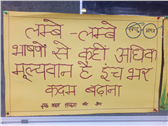 लम्बे - लम्बे
भाषणों से कहीं अधिक
मूल्यवान है इंच भर
कदम बढ़ाना